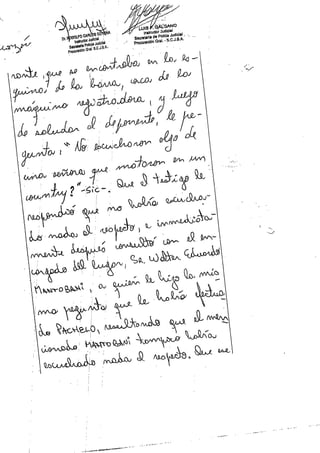 LUIS F. GALSIANO
Instructor Judicial
Secretaría de Policía Judicial
Procuración Gral. - S.C.J.B.A.
Dr. RODOLFO CARLOS
Instructor Judicial
Secretaría Policía Judicial
Procuración Gral. S.C.J.B.A.
rante, que se encontraba en la es-
quina de la barra, cerca de la
máquina registradora, y luego
de saludar al deponente, le pre-
gunta, "No escucharon algo de
una señora que mataron en un
country?" -sic-. Que el testigo le
respondió que no había escucha-
do nada al respecto, e inmediata-
mente después consultó con el en-
cargado del lugar, Sr. Walter Eduardo
MANTOBANI, a quien le hizo la mis-
ma pregunta que le había efectua
do PACHELO, resultando que el men
cionado MANTOBANI tampoco había
escuchado nada al respecto. Que ese